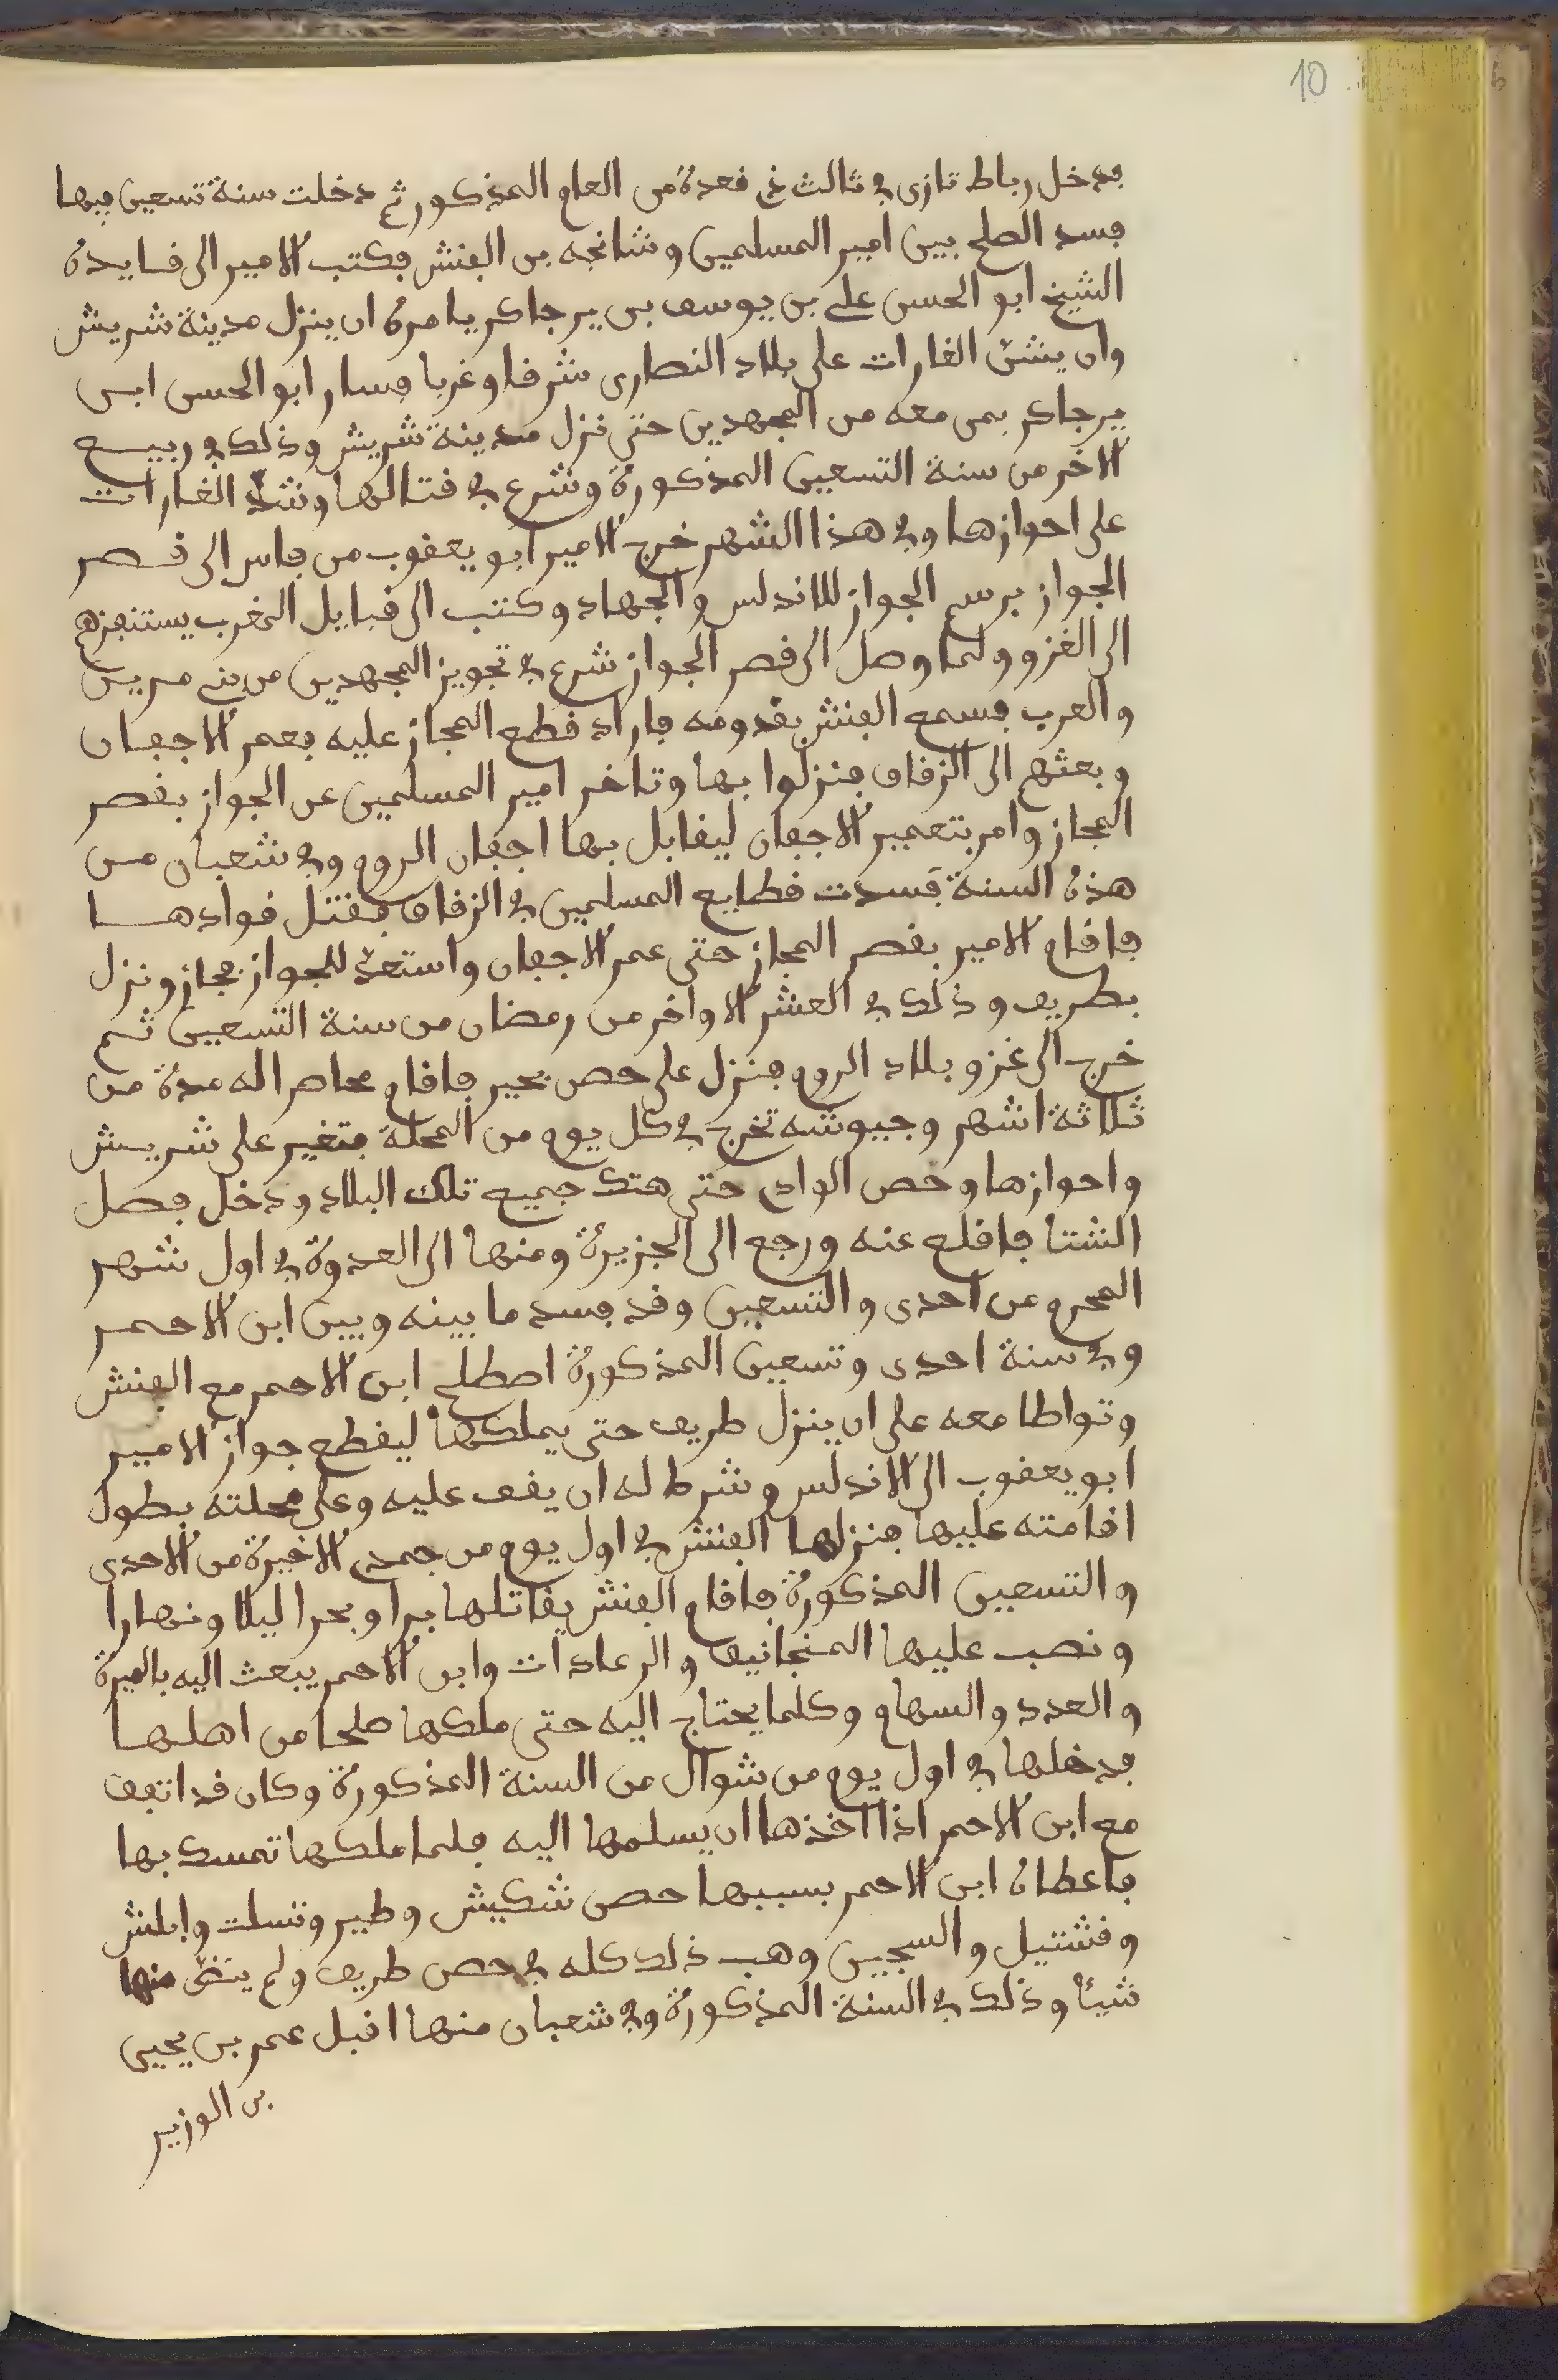 10
فدخل رباط تازى في ثالث ذي قعدة من العام المذكور ثم دخلت سنة تسعين فيها
فسد الصلح بين امير المسلمين وشانجه بن الفنش فكتب الامير الى قايده
الشيخ ابو الحسن علي بن يوسف بن يرجاكر يامره ان ينزل مدينة شريش
وان يشن الغارات على بلاد النصارى شرقا وغربا فسار ابو الحسن ابن
يرجاكر بمن معه من المجهدين حتى نزل مدينة شريش وذلك في ربيع
الاخر من سنة التسعين المذكورة وشرع في قتالها وشن الغارات
على احوازها وفي هذا الشهر خرج الامير ابو يعقوب من فاس الى قصر
الجواز برسم الجواز للاندلس والجهاد وكتب الى قبايل المغرب يستنفرهم
الى الغزو ولما وصل الى قصر الجواز شرع في تجويز المجهدين من بني مرين
والعرب فسمع الفنش بقدومه فاراد قطع المجاز عليه فعمر الاجفان
وبعثهم الى الزقاق فنزلوا بها وتاخر امير المسلمين عن الجواز بقصر
المجاز وامر بتعمير الاجفان ليقابل بها اجفان الروم وفي شعبان من
هذه السنة فسدت قطايع المسلمين في الزقاق فقتل قوادها
فاقام الامير بقصر المجاز حتى عمر الاجفان واستعد للجواز فجاز ونزل
بطريف وذلك في العشر الاواخر من رمضان من سنة التسعين ثم
خرج الى غزو بلاد الروم فنزل على حصن بحير فاقام محاصرا له مدة من
ثلاثة اشهر وجيوشه تخرج في كل يوم من المحلة فتغير على شريش
واحوازها وحصن الوادي حتى هتك جميع تلك البلاد ودخل فصل
الشتا فاقلع عنه ورجع الى الجزيرة ومنها الى العدوة في اول شهر
المحرم من احدى والتسعين وقد فسد ما بينه وبين ابن الاحمر
وفي سنة احدى وتسعين المذكورة اصطلح ابن الاحمر مع الفنش
وتواطا معه على ان ينزل طريف حتى يملكها ليقطع جواز الامير
ابو يعقوب الى الاندلس وشرط له ان يقف عليه وعلى محلته بطول
اقامته عليها فنزلها الفنش في اول يوم من جمدى الاخيرة من الاحدى
والتسعين المذكورة فاقام الفنش يقاتلها برا وبحرا ليلا ونهارا
ونصب عليها المنجانيق والرعادات وابن الاحمر يبعث اليه بالميرة
والعدد والسهام وكلما يحتاج اليه حتى ملكها صلحا من اهلها
فدخلها في اول يوم من شوال من السنة المذكورة وكان قد اتفق
مع ابن الاحمر اذا اخذها ان يسلمها اليه فلما ملكها تمسك بها
فاعطاه ابن الاحمر بسببها حصن شكيش وطبير وتسلت وابلش
وقشتيل والسجين وهب ذلك كله في حصن طريف ولم ينق منها
شيئا وذلك في السنة المذكورة وفي شعبان منها اقبل عمر بن يحيى
بن الوزير